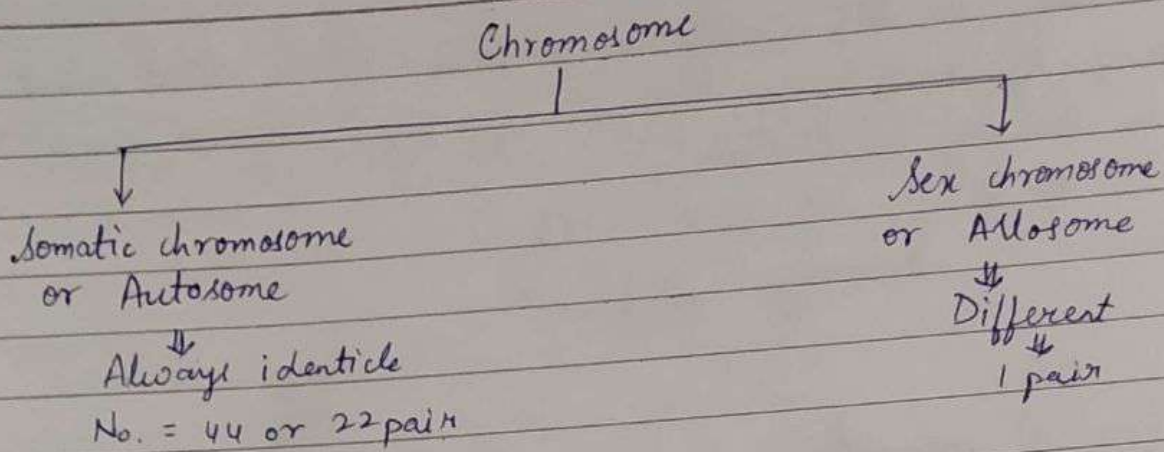 Chromosome
Somatic chromosome
or Autosome
Always identicle
No. = 44 or 22 pair
Sex chromosome
or Allosome
Different
1 pair